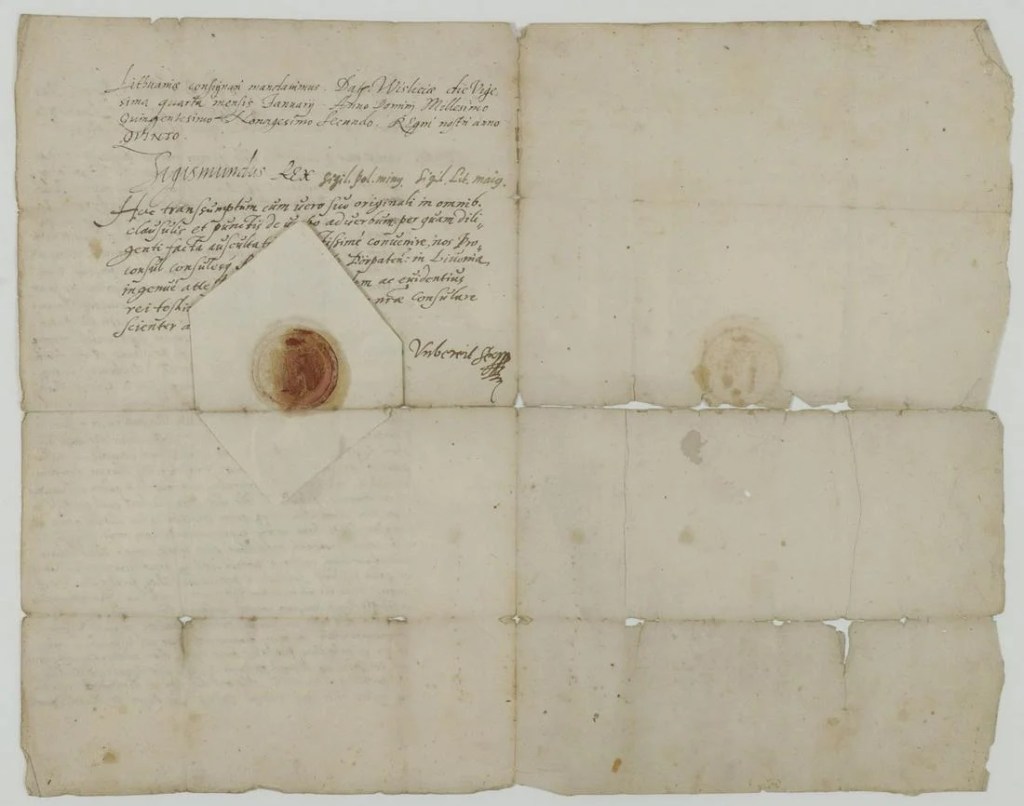 Lithuaniæ consignari mandavimus. Dat. Wisliciæ die Vige
sima quarta mensis January Anno Domini Millesimo
Quingentesimo Nonagesimo Secundo. Regni nostri anno
QVINTO.
Sigismundus Rex Sigil. Pol. ming. Sigil. Lit. maig.
Hoc transsumptum cum vero suo originali in omnib.
clausulis et punctis de ad verbum, per quam dili„
genti facta auscultat tissimè convenire, nos Pro„
consul consules Dörpaten: in Livonia
ingenuè atte m ac evidentius
rei testi nræ Consulare
scienter a